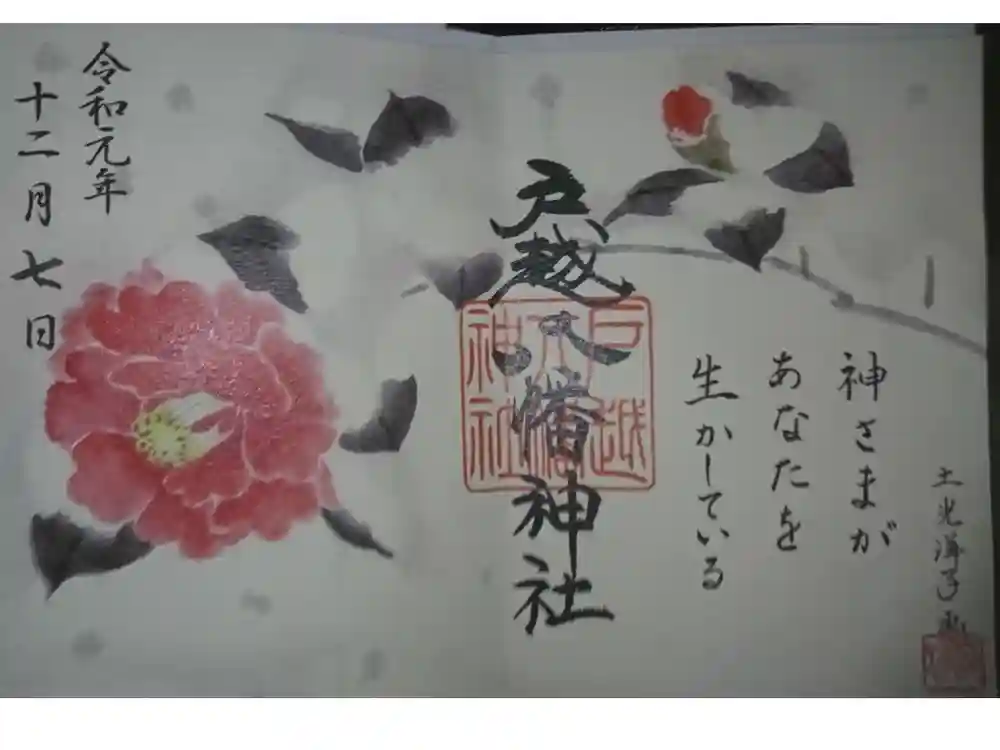 神さまが
あなたを
生かしている
戸越八幡神社
戸越
八幡
神社
令和元年
十二月七日